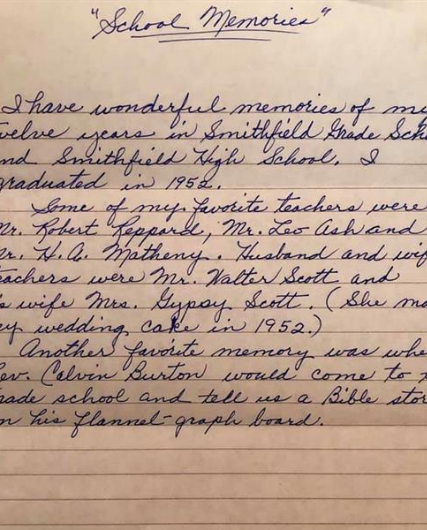 "School Memories"
I have wonderful memories of my
twelve years in Smithfield Grade Scho
and Smithfield High School. I
graduated in 1952.
Some of my favorite teachers were
Mr. Robert Reppard, Mr. Leo Ash and
Mr. H.A. Matheny. Husband and wif
teachers were Mr. Walter Scott and
is wife Mrs. Gypsy Scott. (She ma
ey wedding cake in 1952.)
Another favorite memory was whe
Rev. Calvin Burton would come to
rade school and tell us a Bible stor
on his flannel-graph board.